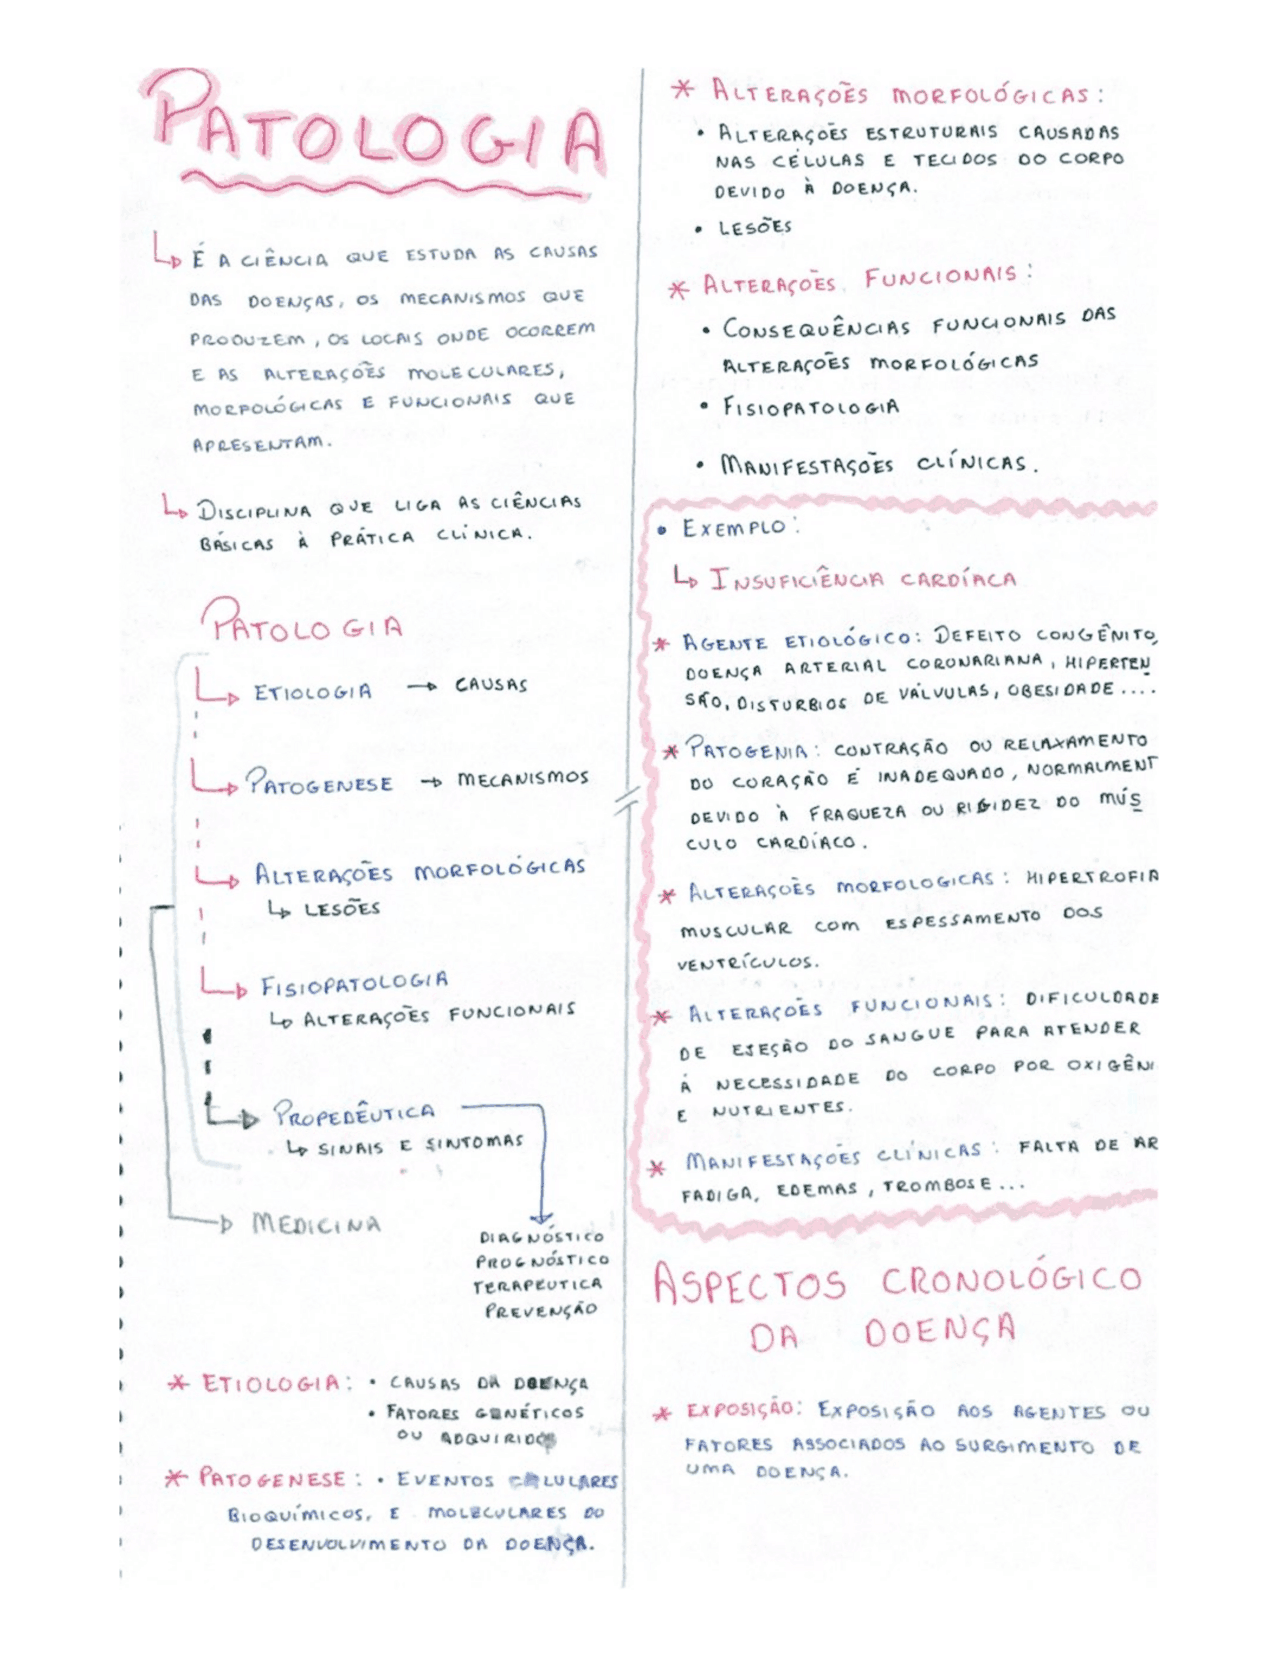 PATOLOGIA
É A CIÊNCIA QUE ESTUDA AS CAUSAS
DAS DOENÇAS, OS MECANISMOS QUE
PRODUZEM, OS LOCAIS ONDE OCORREM
E AS ALTERAÇÕES MOLECULARES,
MORFOLÓGICAS E FUNCIONAIS QUE
APRESENTAM.
DISCIPLINA QUE LIGA AS CIÊNCIAS
BÁSICAS À PRÁTICA CLÍNICA.
PATOLOGIA
ETIOLOGIA → CAUSAS
PATOGENESE → MECANISMOS
ALTERAÇÕES MORFOLÓGICAS
↳ LESÕES
FISIOPATOLOGIA
↳ ALTERAÇÕES FUNCIONAIS
PROPEDÊUTICA
↳ SINAIS E SINTOMAS
MEDICINA
DIAGNÓSTICO
PROGNÓSTICO
TERAPEUTICA
PREVENÇÃO
* ETIOLOGIA: • CAUSAS DA DOENÇA
• FATORES GENÉTICOS
OU ADQUIRIDOS
* PATOGENESE: • EVENTOS CELULARES
BIOQUÍMICOS, E MOLECULARES DO
DESENVOLVIMENTO DA DOENÇA.
* ALTERAÇÕES MORFOLÓGICAS:
• ALTERAÇÕES ESTRUTURAIS CAUSADAS
NAS CÉLULAS E TECIDOS DO CORPO
DEVIDO À DOENÇA.
• LESÕES
* ALTERAÇÕES FUNCIONAIS:
• CONSEQUÊNCIAS FUNCIONAIS DAS
ALTERAÇÕES MORFOLÓGICAS
• FISIOPATOLOGIA
• MANIFESTAÇÕES CLÍNICAS.
• EXEMPLO:
↳ INSUFICIÊNCIA CARDÍACA
* AGENTE ETIOLÓGICO: DEFEITO CONGÊNITO,
DOENÇA ARTERIAL CORONARIANA, HIPERTEN
SÃO, DISTURBIOS DE VÁLVULAS, OBESIDADE....
* PATOGENIA: CONTRAÇÃO OU RELAXAMENTO
DO CORAÇÃO É INADEQUADO, NORMALMENT
DEVIDO À FRAQUEZA OU RIGIDEZ DO MÚS
CULO CARDÍACO.
* ALTERAÇÕES MORFOLOGICAS: HIPERTROFIA
MUSCULAR COM ESPESSAMENTO DOS
VENTRÍCULOS.
* ALTERAÇÕES FUNCIONAIS: DIFICULDADE
DE EJEÇÃO DO SANGUE PARA ATENDER
À NECESSIDADE DO CORPO POR OXIGÊNI
E NUTRIENTES.
* MANIFESTAÇÕES CLÍNICAS: FALTA DE AR
FADIGA, EDEMAS, TROMBOSE...
ASPECTOS CRONOLÓGICO
DA DOENÇA
* EXPOSIÇÃO: EXPOSIÇÃO AOS AGENTES OU
FATORES ASSOCIADOS AO SURGIMENTO DE
UMA DOENÇA.